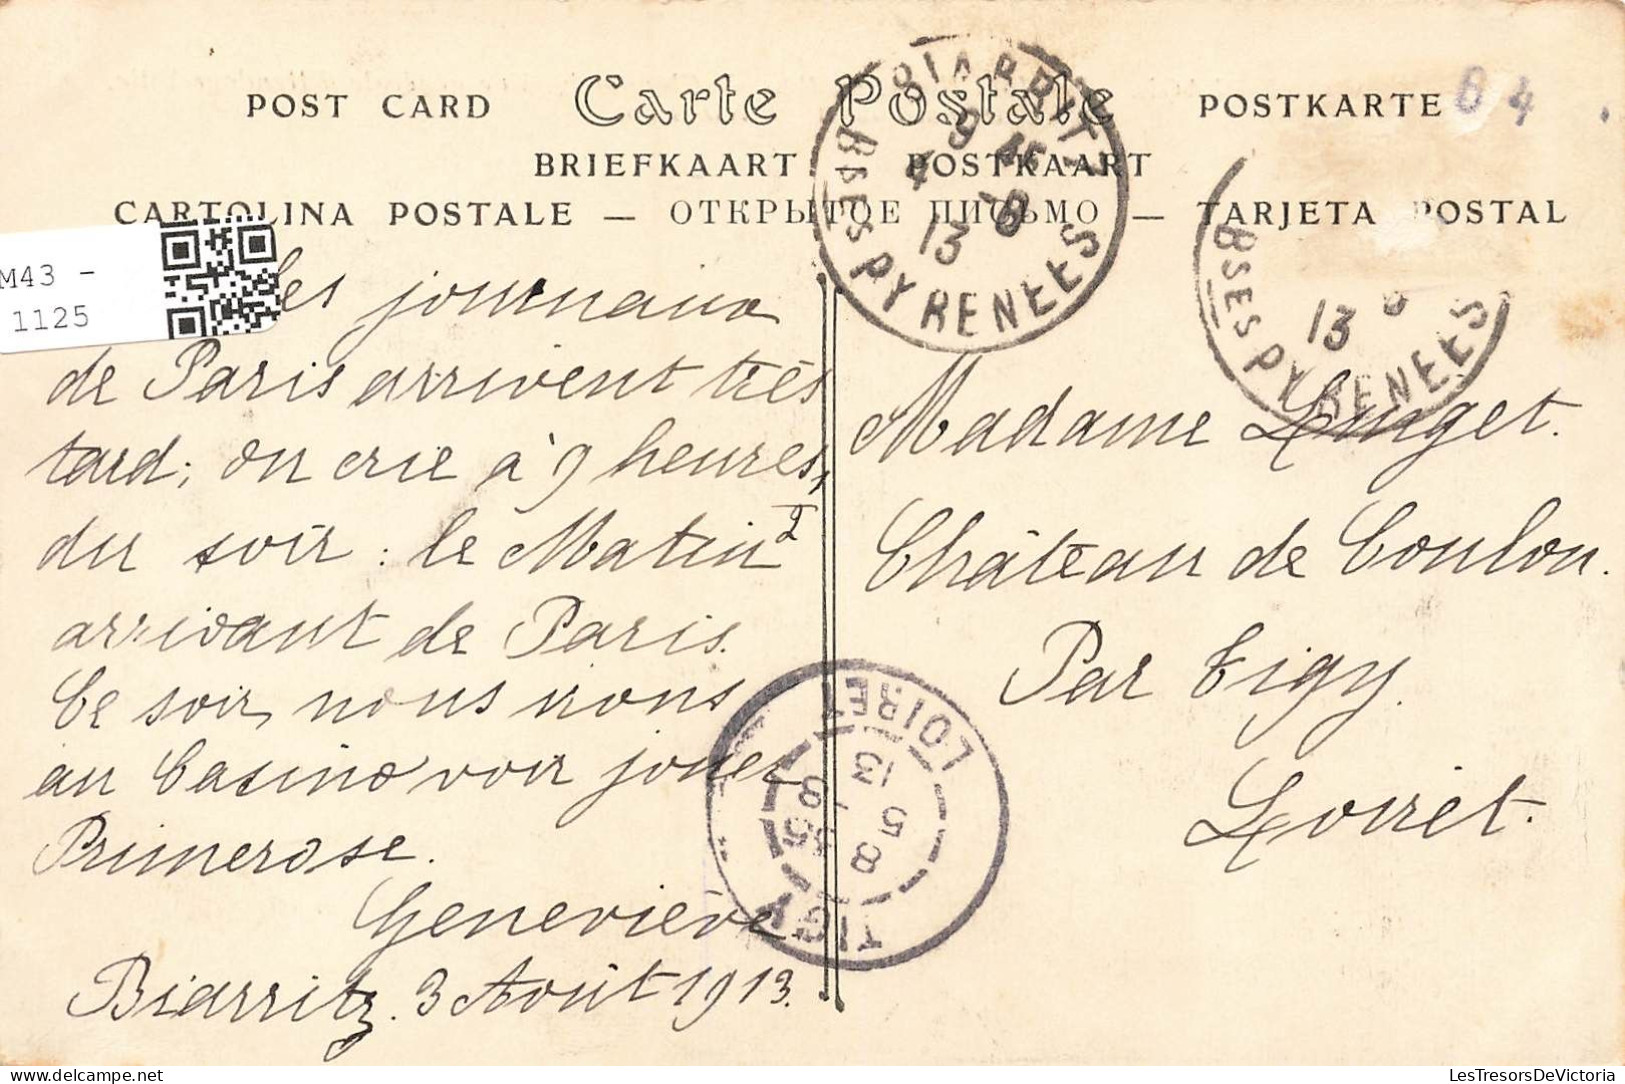 POST CARD Carte Postale POSTKARTE 84
BRIEFKAART POSTKAART
CARTOLINA POSTALE — ОТКРЫТОЕ ПИСЬМО — TARJETA POSTAL
M43 -
1125
Les journaux
de Paris arrivent très
tard; on crie à 9 heures,
du soir : le Matin
arrivant de Paris.
Ce soir, nous irons
au Casino voir jouer
Primerose.
Geneviève
Biarritz. 3 Août 1913.
BIARRITZ
9 45
4 -8
13
BSES PYRENEES
BSES PYRENEES
13 8
Madame Linget.
Château de Coulon.
Par Tigy.
Loiret.
TIGY
8
5 -8
13
LOIRET
LesTresorsDeVictoria